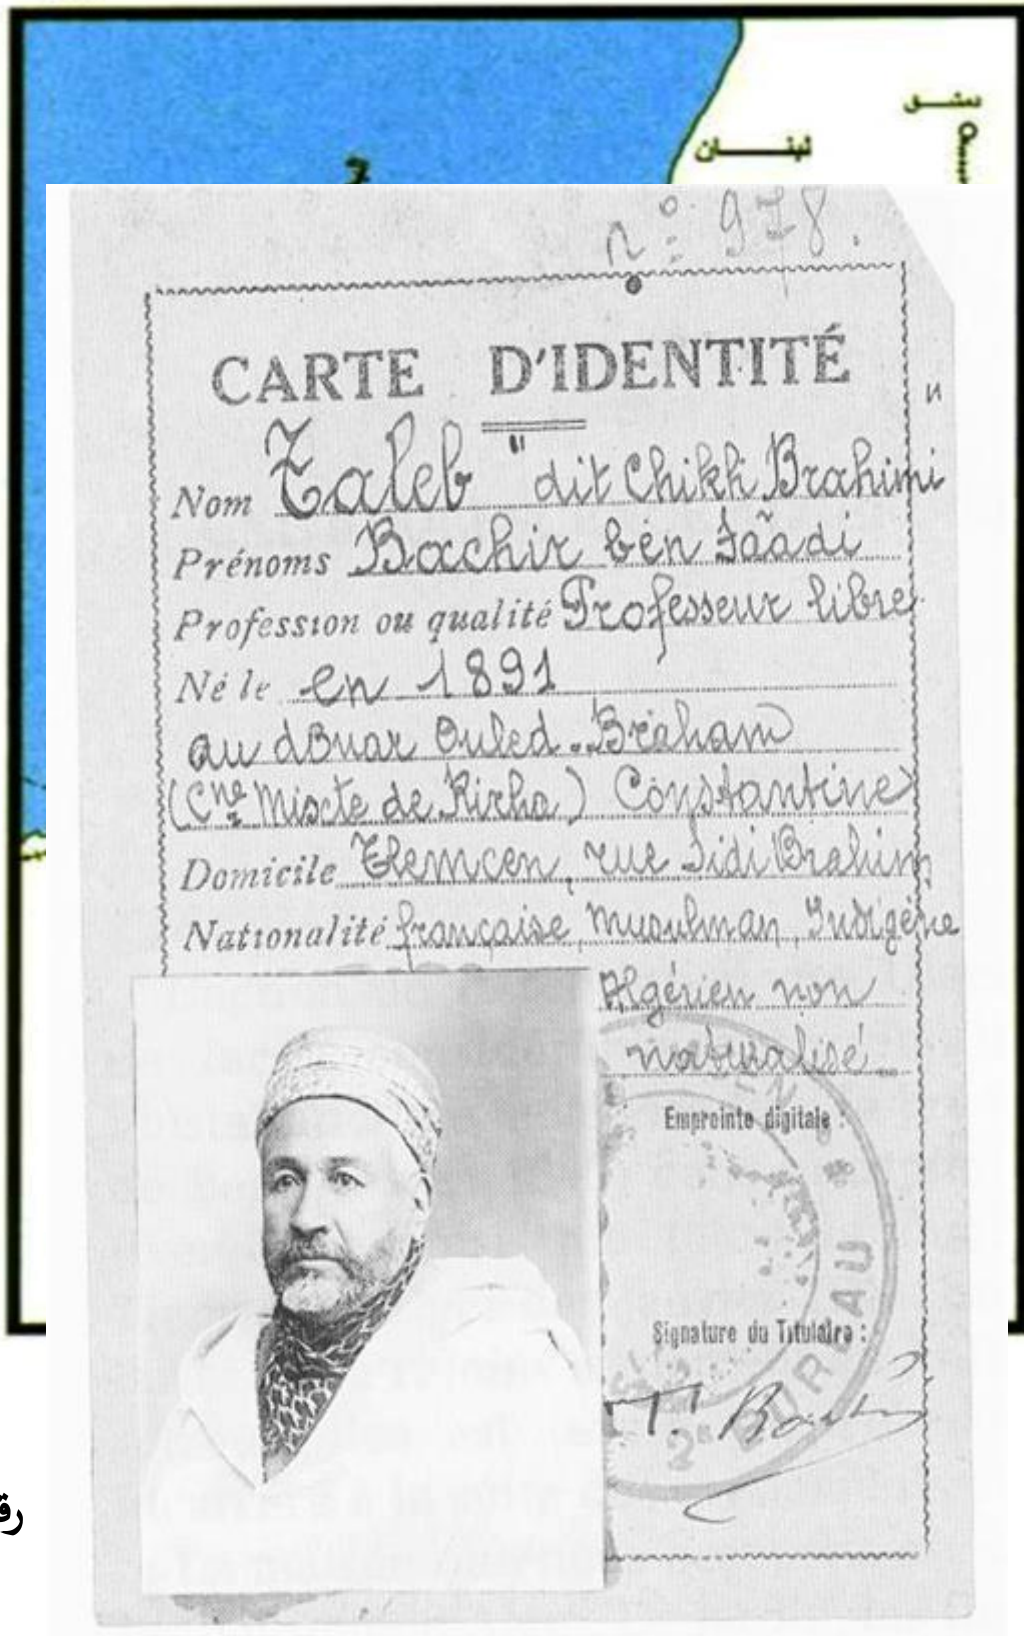 دمشق
لبنان
n° 978.
CARTE D'IDENTITÉ
Nom Taleb "dit Chikh Brahimi
Prénoms Bachir ben Sâadi
Profession ou qualité Professeur libre
Né le en 1891
au douar Ouled-Braham
(Cne Mixte de Rirha) Constantine
Domicile Tlemcen, rue Sidi Brahim
Nationalité française, Musulman, Indigène
Algérien non
naturalisé
Empreinte digitale :
Signature du Titulaire :
2e BUREAU